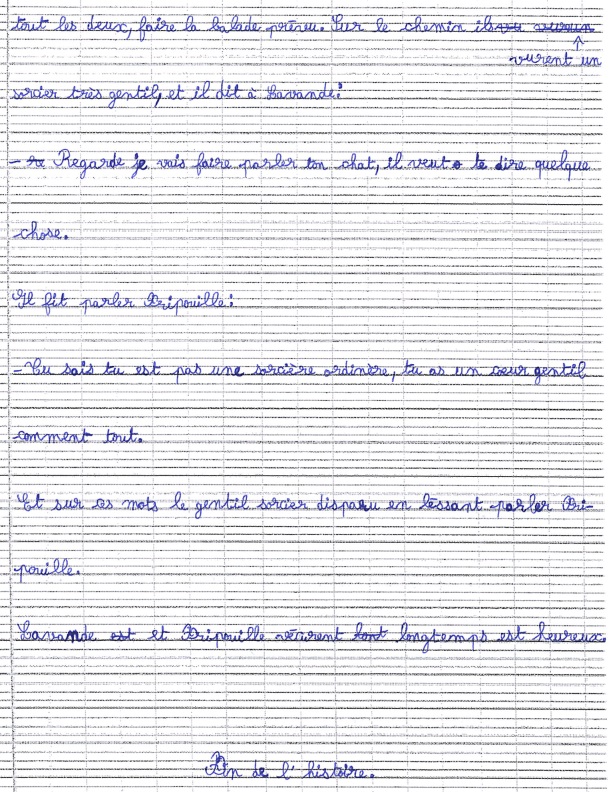 tout les deux, faire la balade prévu. Sur le chemin ils
vurent un
sorcier très gentil, et il dit à Lavande:
- Regarde je vais faire parler ton chat, il veut te dire quelque
chose.
Il fit parler Fripouille:
- Tu sais tu est pas une sorcière ordinère, tu as un coeur gentil
comment tout.
Et sur ces mots le gentil sorcier disparu en léssant parler Fri-
pouille.
Lavande et Fripouille vécurent longtemps est heureux.
Fin de l'histoire.